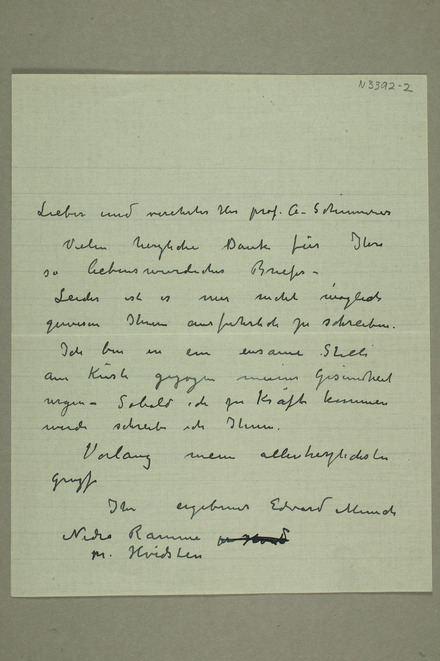 N 3392-2
Lieber und verehrter Herr prof. A. Schinnerer
Vielen herzliche Dank für Ihre
so liebenswürdiches Briefs –
Leider ist es mir nicht möglich
gewesen Ihnen ausfuhrlich zu schreiben.
Ich bin in ein einsame Stelle
am Küste gezogen meiner Gesundheit
wegen – Sobald ich zu Kräfte kommen
werde schreibe ich Ihnen.
Vorlang meine allerherzlichsten
Grüsse
Ihr ergebener Edvard Munch
Nedre Ramme
pr. Hvidsten